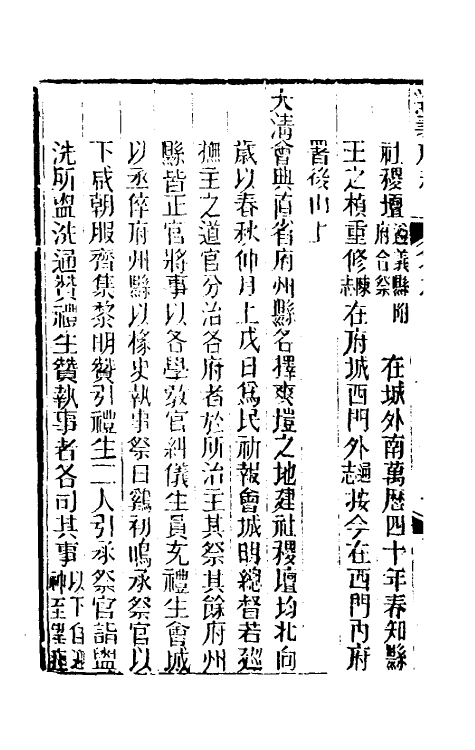 社稷壇遵義縣附府合祭　在城外南萬曆四十年春知縣
王之楨重修陳志在府城西門外通志按今在西門內府
署後山上
大清會典直省府州縣各擇爽塏之地建社稷壇均北向
歲以春秋仲月上戊日爲民祈報會城明總督若廵
撫主之道官分治各府者於所治主其祭其餘府州
縣皆正官將事以各學敎官糾儀生員充禮生會城
以丞倅府州縣以椽史執事祭日鷄初鳴承祭官以
下咸朝服齊集黎明贊引禮生二人引承祭官詣盥
洗所盥洗通贊禮生贊執事者各司其事以下自迎神至望